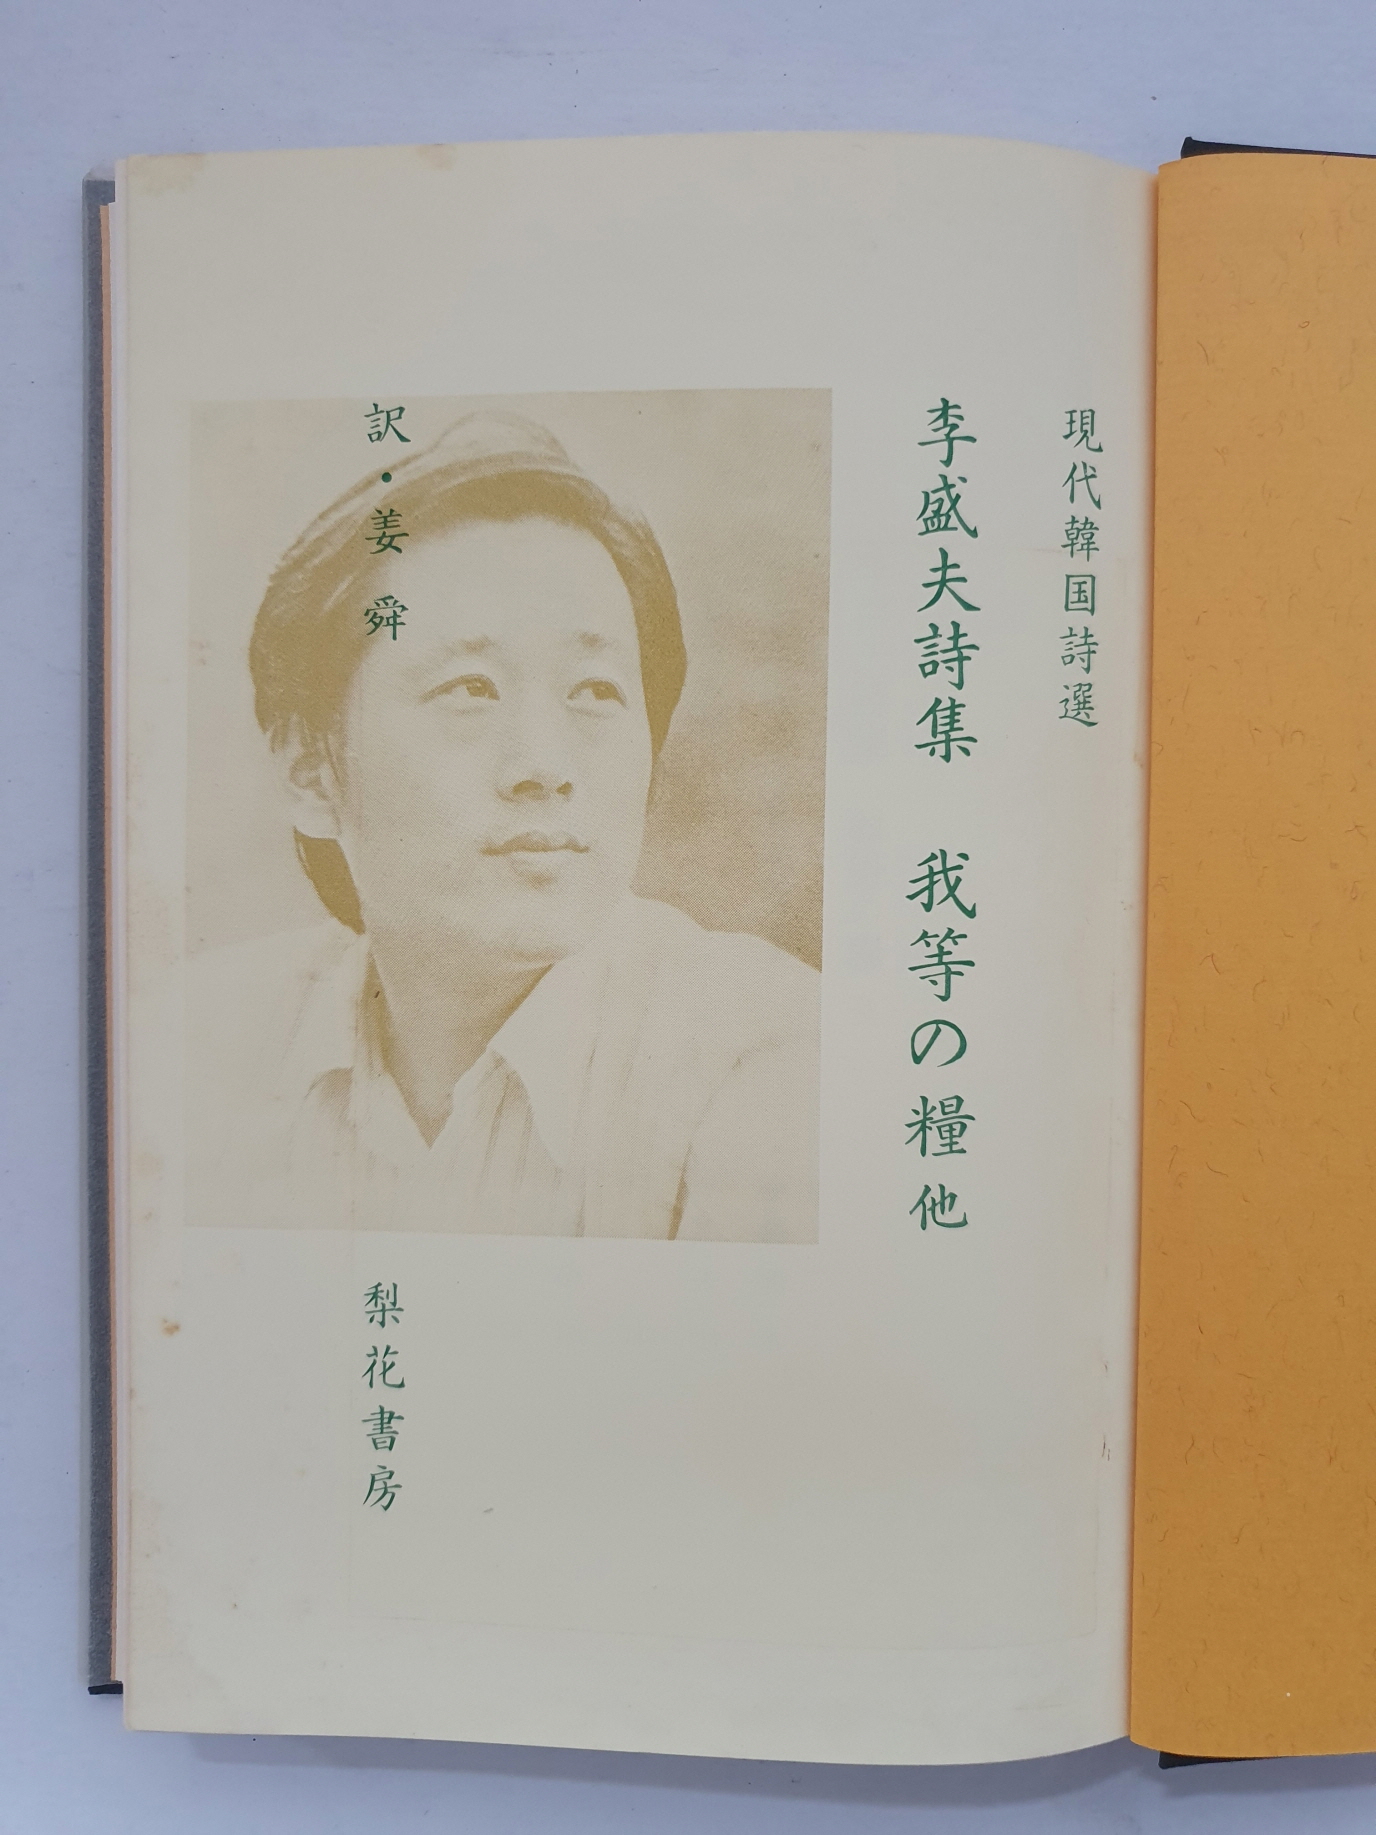 現代韓国詩選
李盛夫詩集　我等の糧他
訳・姜舜
梨花書房